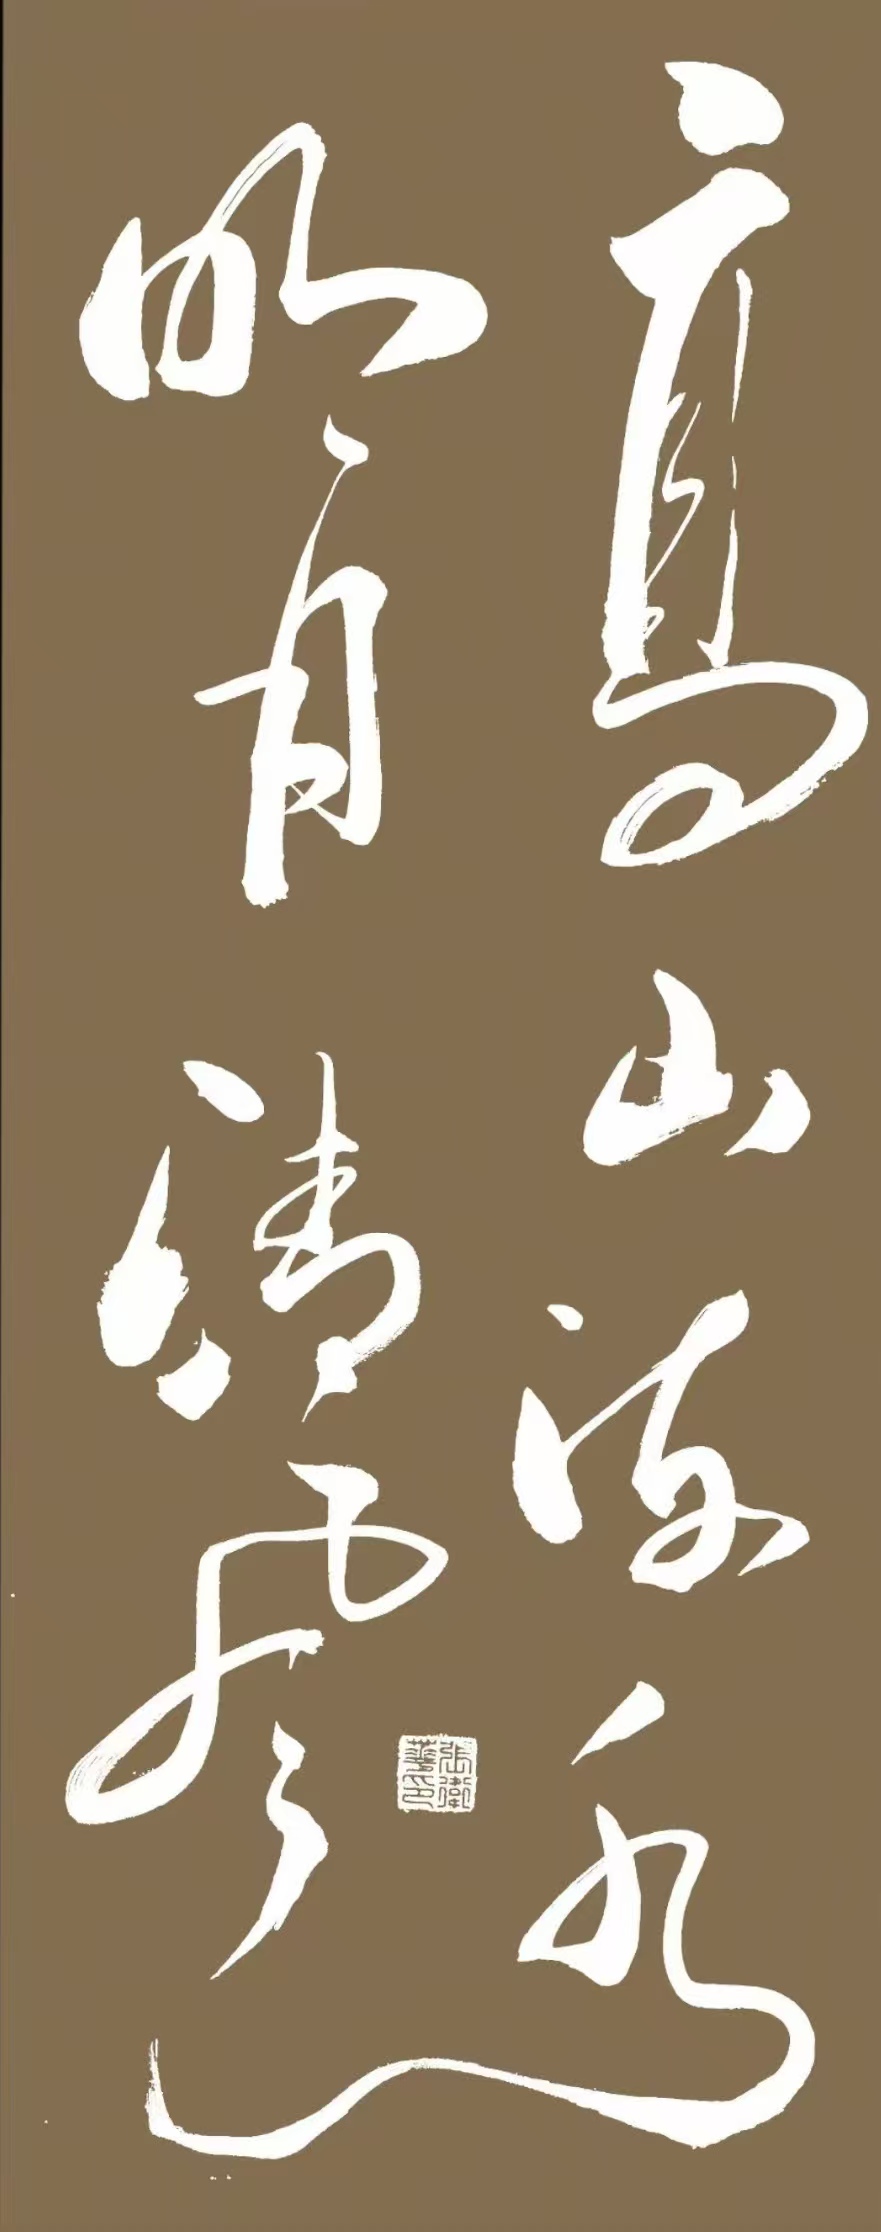 高山流水
明月清风